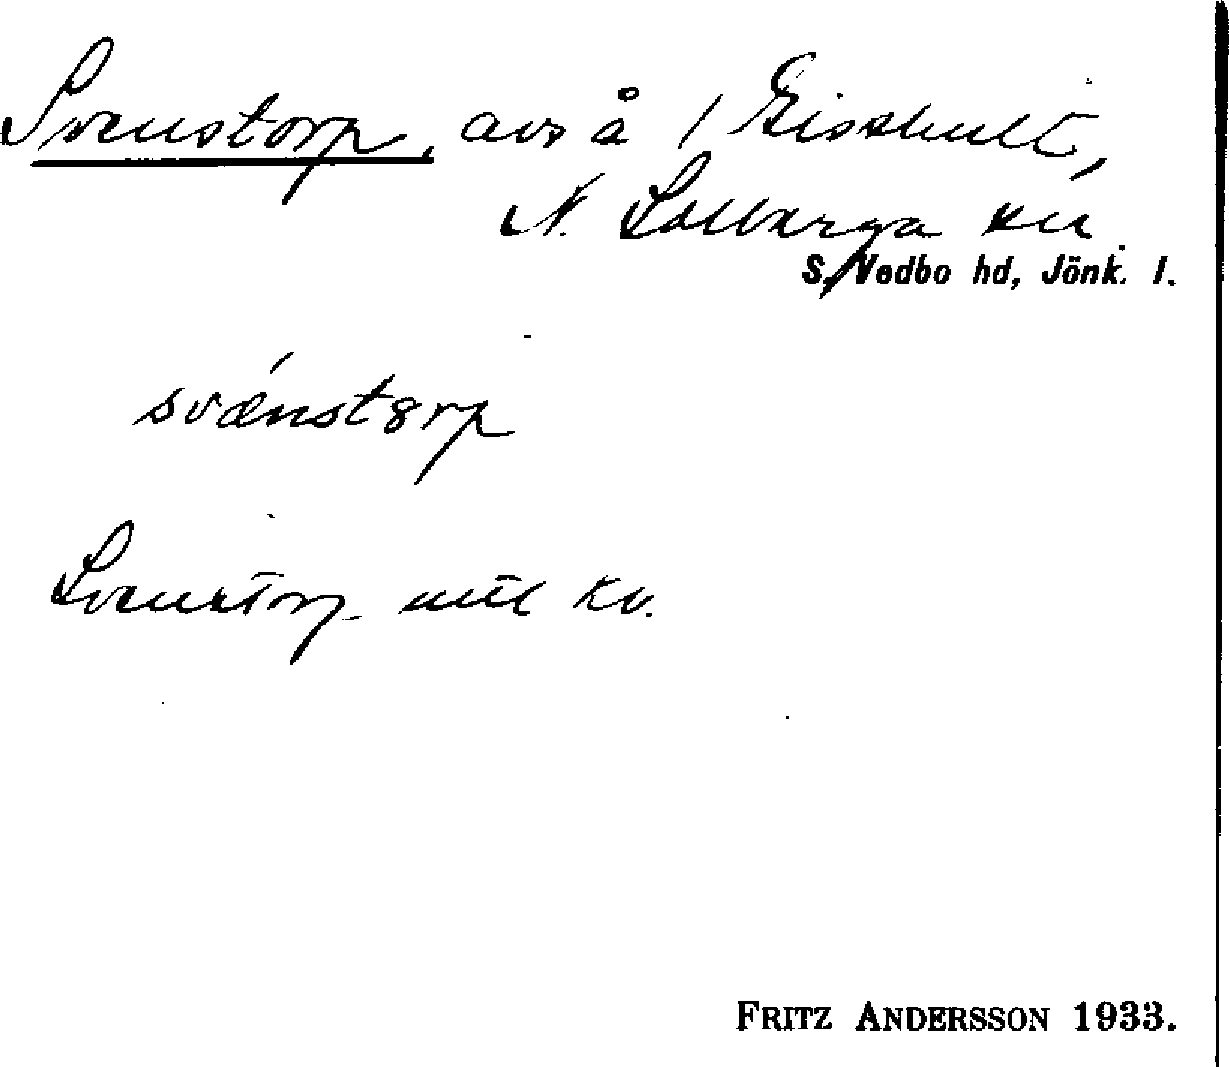 Svenstorp, avs å 1 Gisshult,
N. Solberga sn
S. Vedbo hd, Jönk. l.
svǽnstɵrp
Svenstorp
FRITZ ANDERSSON 1933.